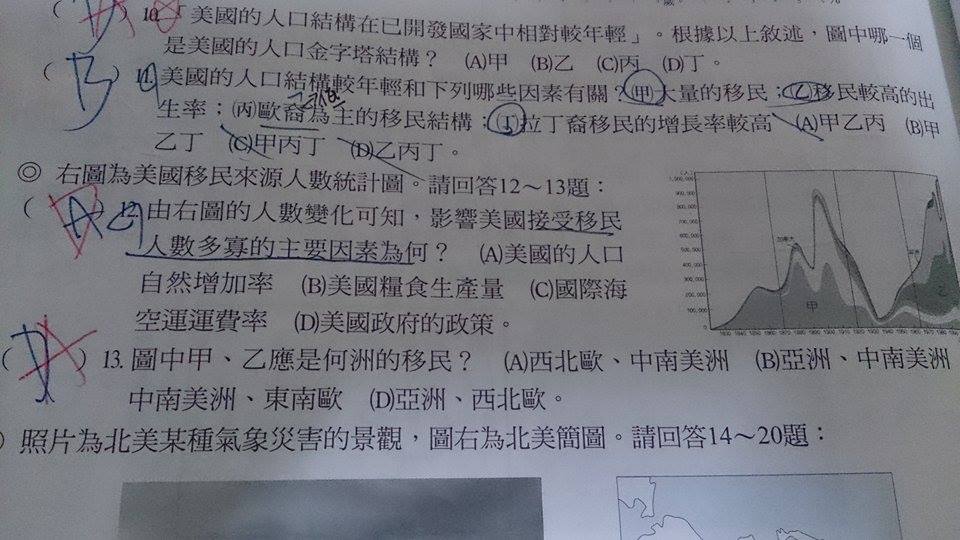 10.「美國的人口結構在已開發國家中相對較年輕」。根據以上敘述，圖中哪一個
是美國的人口金字塔結構？ (A)甲 (B)乙 (C)丙 (D)丁。
( B ) 11. 美國的人口結構較年輕和下列哪些因素有關：(甲)大量的移民；(乙)移民較高的出
生率；(丙)歐裔為主的移民結構；(丁)拉丁裔移民的增長率較高 (A)甲乙丙 (B)甲
乙丁 (C)甲丙丁 (D)乙丙丁。
◎ 右圖為美國移民來源人數統計圖。請回答12～13題：
( A ) 12. 由右圖的人數變化可知，影響美國接受移民
人數多寡的主要因素為何？ (A)美國的人口
自然增加率 (B)美國糧食生產量 (C)國際海
空運運費率 (D)美國政府的政策。
1,000,000
900,000
800,000
700,000
600,000
500,000
400,000
300,000
200,000
100,000
0
加拿大
甲
乙
( ) 13. 圖中甲、乙應是何洲的移民？ (A)西北歐、中南美洲 (B)亞洲、中南美洲
中南美洲、東南歐 (D)亞洲、西北歐。
照片為北美某種氣象災害的景觀，圖右為北美簡圖。請回答14～20題：